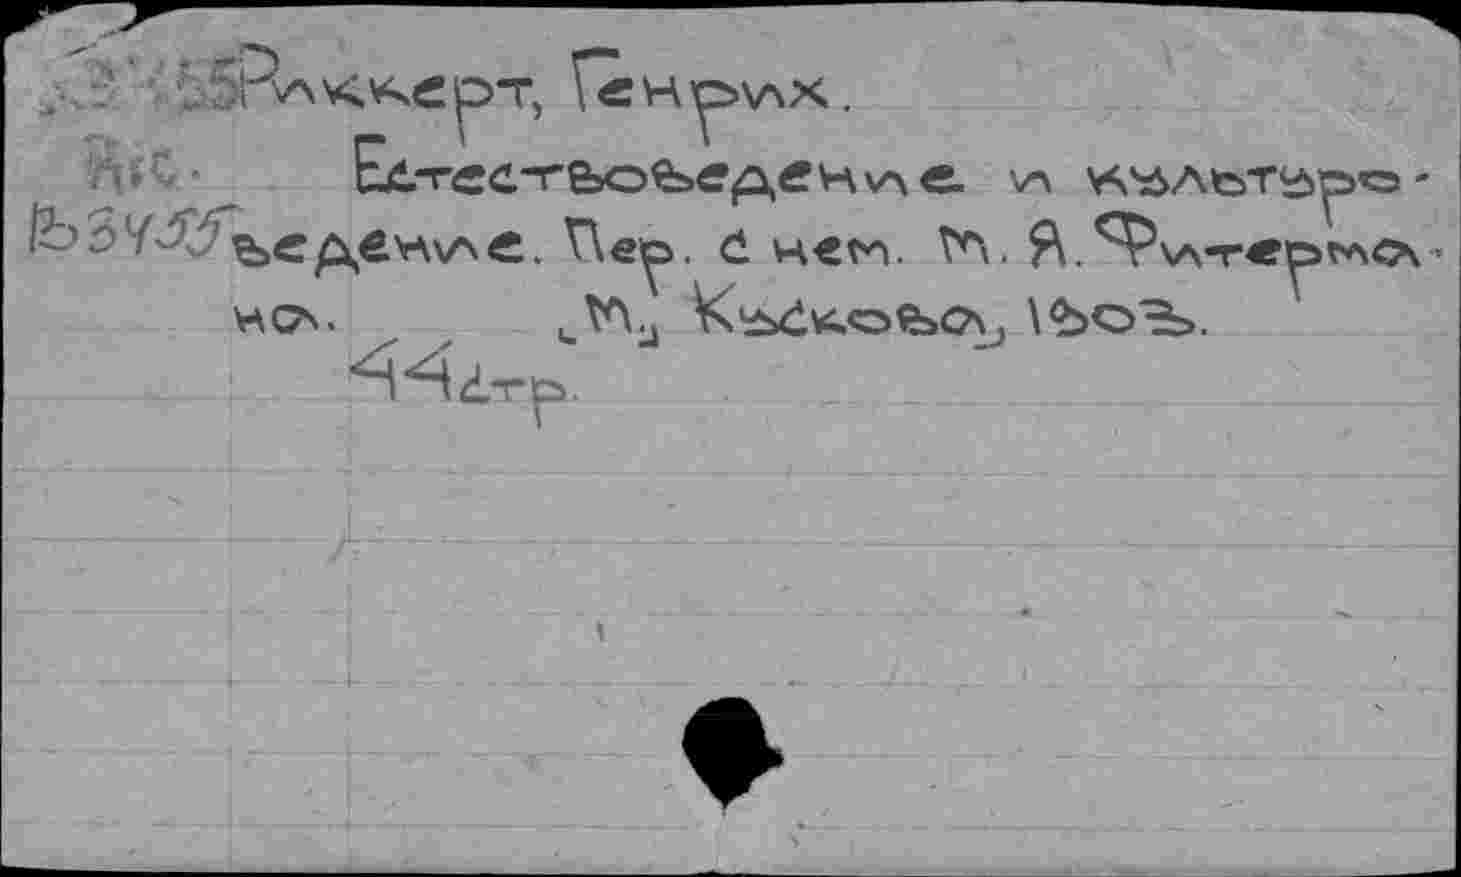 Риккерт, Генрих.
Естествоведение и культуро-
ведение. Пер. с нем. М. Я. Фитерма-
на. [М.] Кускова, 1903.
44 стр.